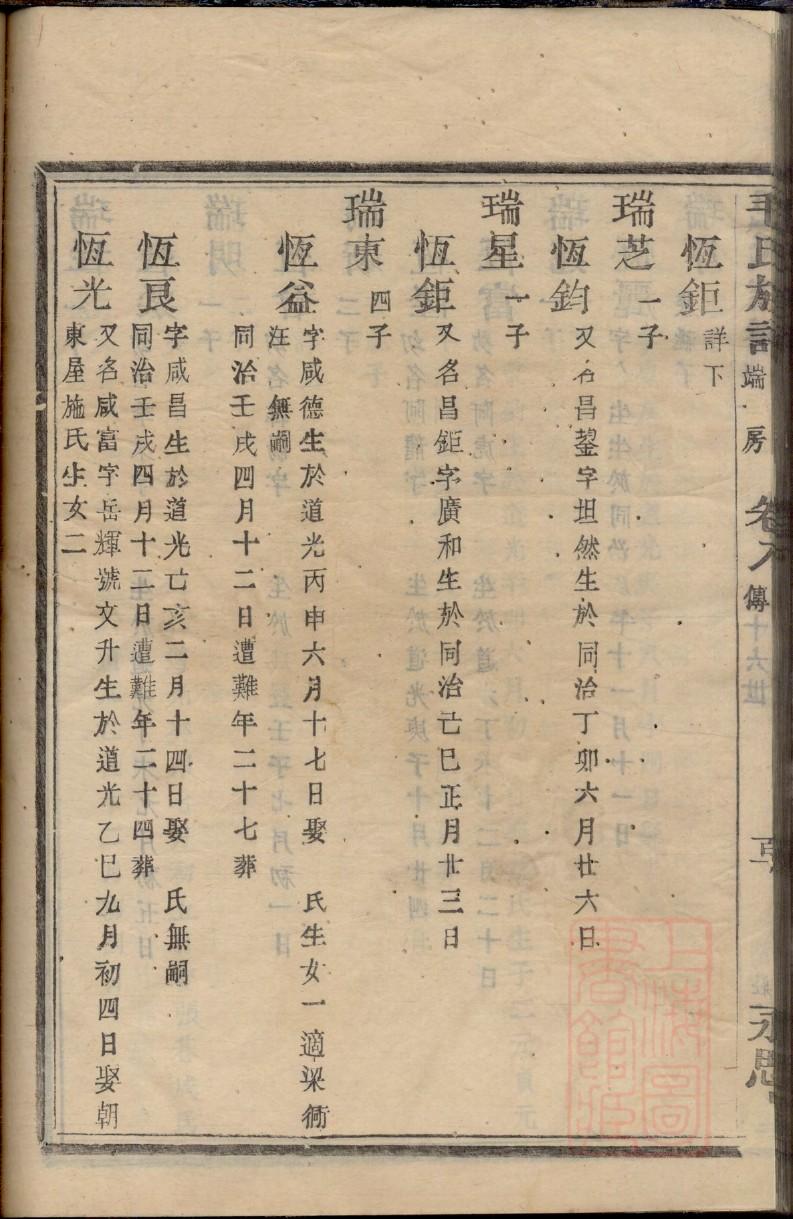 王氏族譜 端房 卷八 傳十六世 永思
恆鉅 詳下
瑞芝 一子
恆鈞 又名昌鋆字坦然生於同治丁卯六月廿六日
瑞星 一子
恆鉅 又名昌鉅字廣和生於同治己巳正月廿三日
瑞東 四子
恆益 字咸德生於道光丙申六月十七日娶 氏生女一適梁衕
汪無嗣
同治壬戌四月十二日遭難年二十七葬
恆良 字咸昌生於道光己亥二月十四日娶 氏無嗣
同治壬戌四月十二日遭難年二十四葬
恆光 又名咸富字岳輝號文升生於道光乙巳九月初四日娶朝
東屋施氏生女二